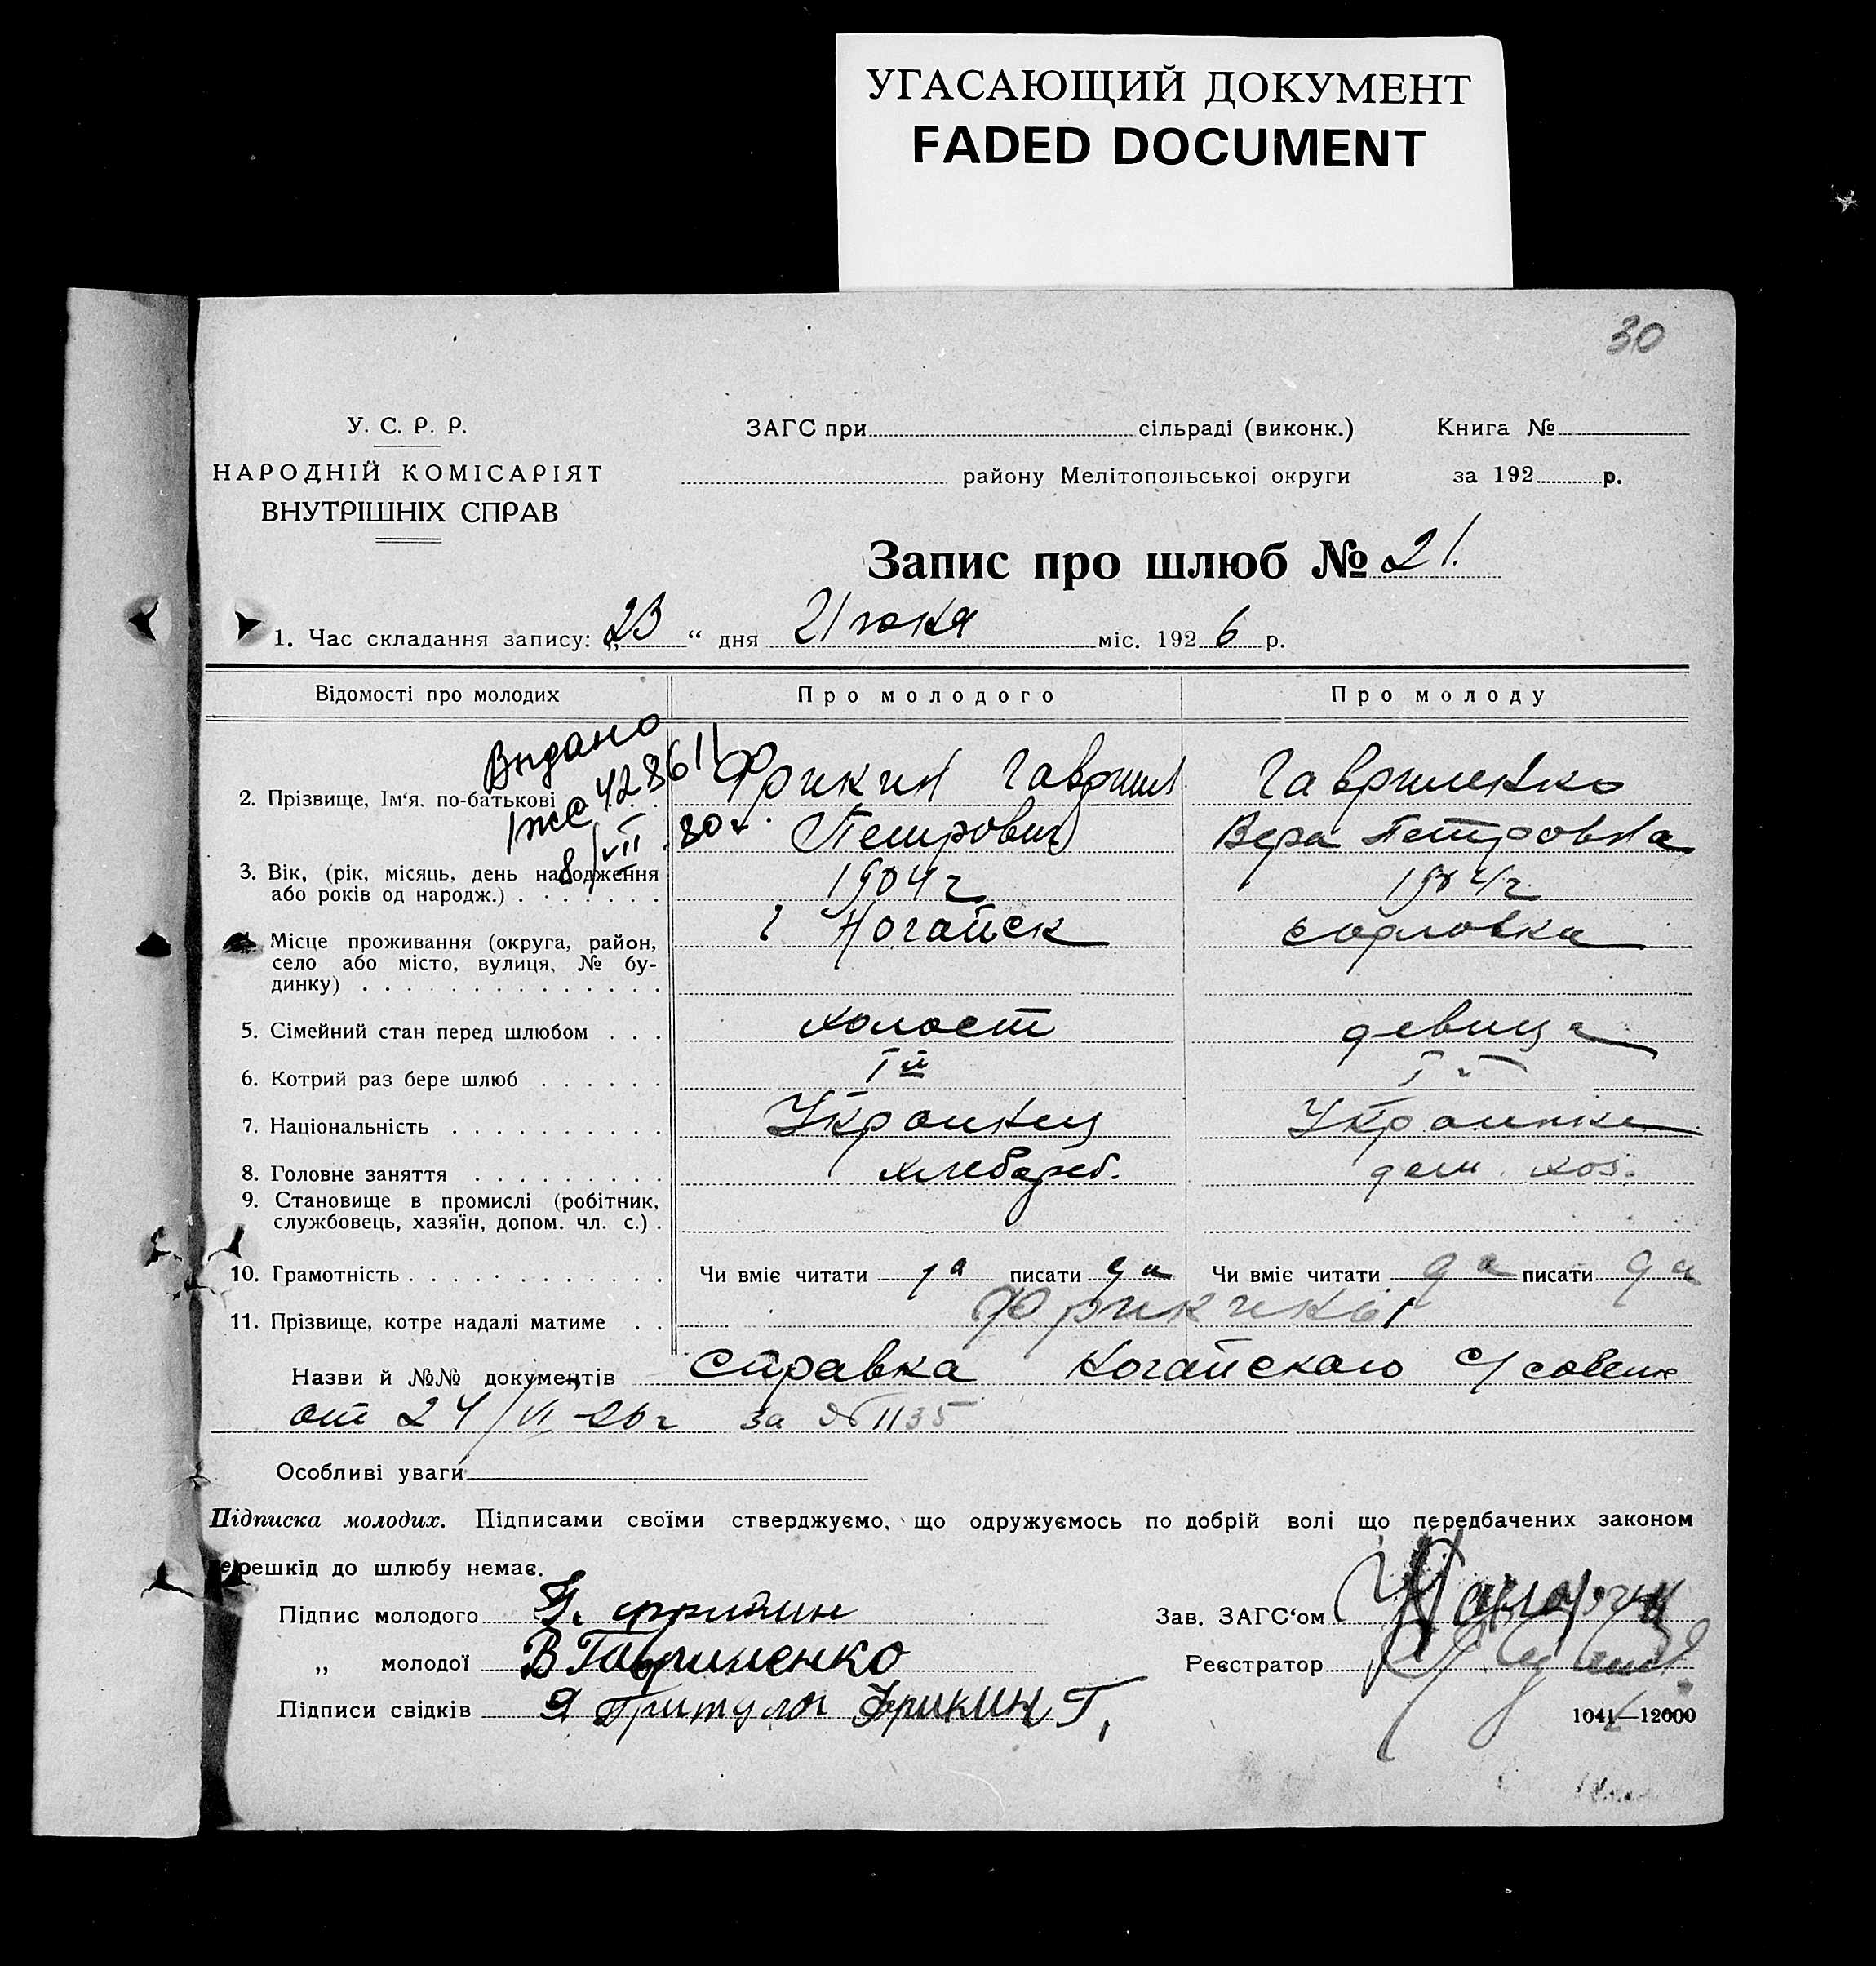 УГАСАЮЩИЙ ДОКУМЕНТ
FADED DOCUMENT
30
У. С. Р. Р.
НАРОДНІЙ КОМІСАРІЯТ
ВНУТРІШНІХ СПРАВ
ЗАГС при сільраді (виконк.)
району Мелітопольської округи
Книга №
за 192 р.
Запис про шлюб № 21.
1. Час складання запису: „23“ дня июня міс. 1926 р.
Відомості про молодих Про молодого Про молоду
Выдано
428611
8/VII 80 г.
2. Прізвище, Ім'я, по-батькові Фрикин Гавриил Гавриленко
Петрович Вера Петровна
3. Вік, (рік, місяць, день народження
або років од народж.) 1904 г 1904 г
Місце проживання (округа, район, г Ногайск
село або місто, вулиця, № бу-
динку)
5. Сімейний стан перед шлюбом холост девица
6. Котрий раз бере шлюб Iй Iй
7. Національність Украинец Украинка
8. Головне заняття хлебороб. дом. хоз.
9. Становище в промислі (робітник,
службовець, хазяїн, допом. чл. с.)
10. Грамотність Чи вміє читати да писати да Чи вміє читати да писати да
11. Прізвище, котре надалі матиме Фрикины
Назви й №№ документів справка Ногайского с/совета
от 24/VI-26 г за № 1135
Особливі уваги
Підписка молодих. Підписами своїми стверджуємо, що одружуємось по добрій волі що передбачених законом
перешкід до шлюбу немає.
Підпис молодого Фрикин
„ молодої В Гавриленко
Підписи свідків Я Притула Фрикин Г.
Зав. ЗАГС'ом
Реєстратор
1041—12000